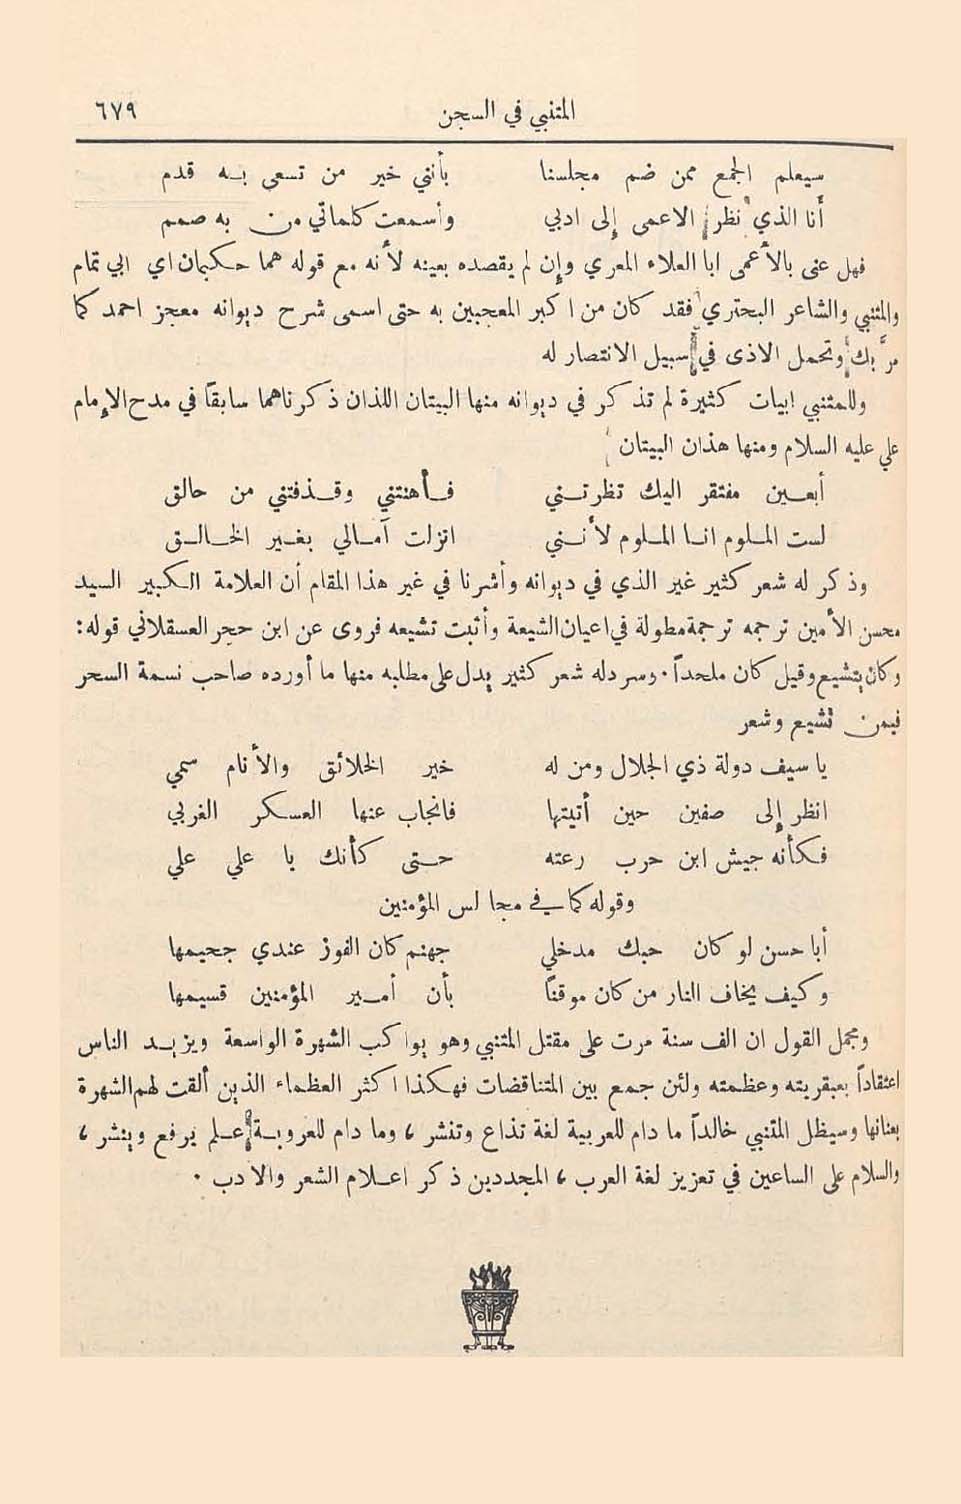 المتنبي في السجن ٦٧٩
سيعلم الجمع ممن ضم مجلسنا بأنني خير من تسعى به قدم
أنا الذي نظر الاعمى إلى ادبي وأسمعت كلماتي من به صمم
فهل عنى بالأعمى ابا العلاء المعري وإن لم يقصده بعينه لأنه مع قوله هما حكيمان اي ابي تمام
والمتنبي والشاعر البحتري فقد كان من اكبر المعجبين به حتى اسمى شرح ديوانه معجز احمد كما
مرَّ بك وتحمل الاذى في سبيل الانتصار له
وللمتنبي ابيات كثيرة لم تذكر في ديوانه منها البيتان اللذان ذكرناهما سابقاً في مدح الإمام
علي عليه السلام ومنها هذان البيتان
أبعين مفتقر اليك نظرتني فأهنتني وقذفتني من حالق
لست الملوم انا الملوم لأنني انزلت آمالي بغير الخالق
وذكر له شعر كثير غير الذي في ديوانه وأشرنا في غير هذا المقام أن العلامة الكبير السيد
محسن الأمين ترجمه ترجمة مطولة في اعيان الشيعة وأثبت تشيعه فروى عن ابن حجر العسقلاني قوله:
وكان يتشيع وقيل كان ملحداً. وسرد له شعر كثير يدل على مطلبه منها ما أورده صاحب نسمة السحر
فيمن تشيع وشعر
يا سيف دولة ذي الجلال ومن له خير الخلائق والأنام سمي
انظر إلى صفين حين أتيتها فانجاب عنها العسكر الغربي
فكأنه جيش ابن حرب رعته حتى كأنك يا علي علي
وقوله كما في مجالس المؤمنين
أبا حسن لو كان حبك مدخلي جهنم كان الفوز عندي جحيمها
وكيف يخاف النار من كان موقناً بأن أمير المؤمنين قسيمها
ومجمل القول ان الف سنة مرت على مقتل المتنبي وهو يواكب الشهرة الواسعة ويزيد الناس
اعتقاداً بعبقريته وعظمته ولئن جمع بين المتناقضات فهكذا اكثر العظماء الذين ألقت لهم الشهرة
بعنانها وسيظل المتنبي خالداً ما دام للعربية لغة تذاع وتنشر ، وما دام للعروبة علم يرفع وينشر ،
والسلام على الساعين في تعزيز لغة العرب ، المجددين ذكر اعلام الشعر والادب .